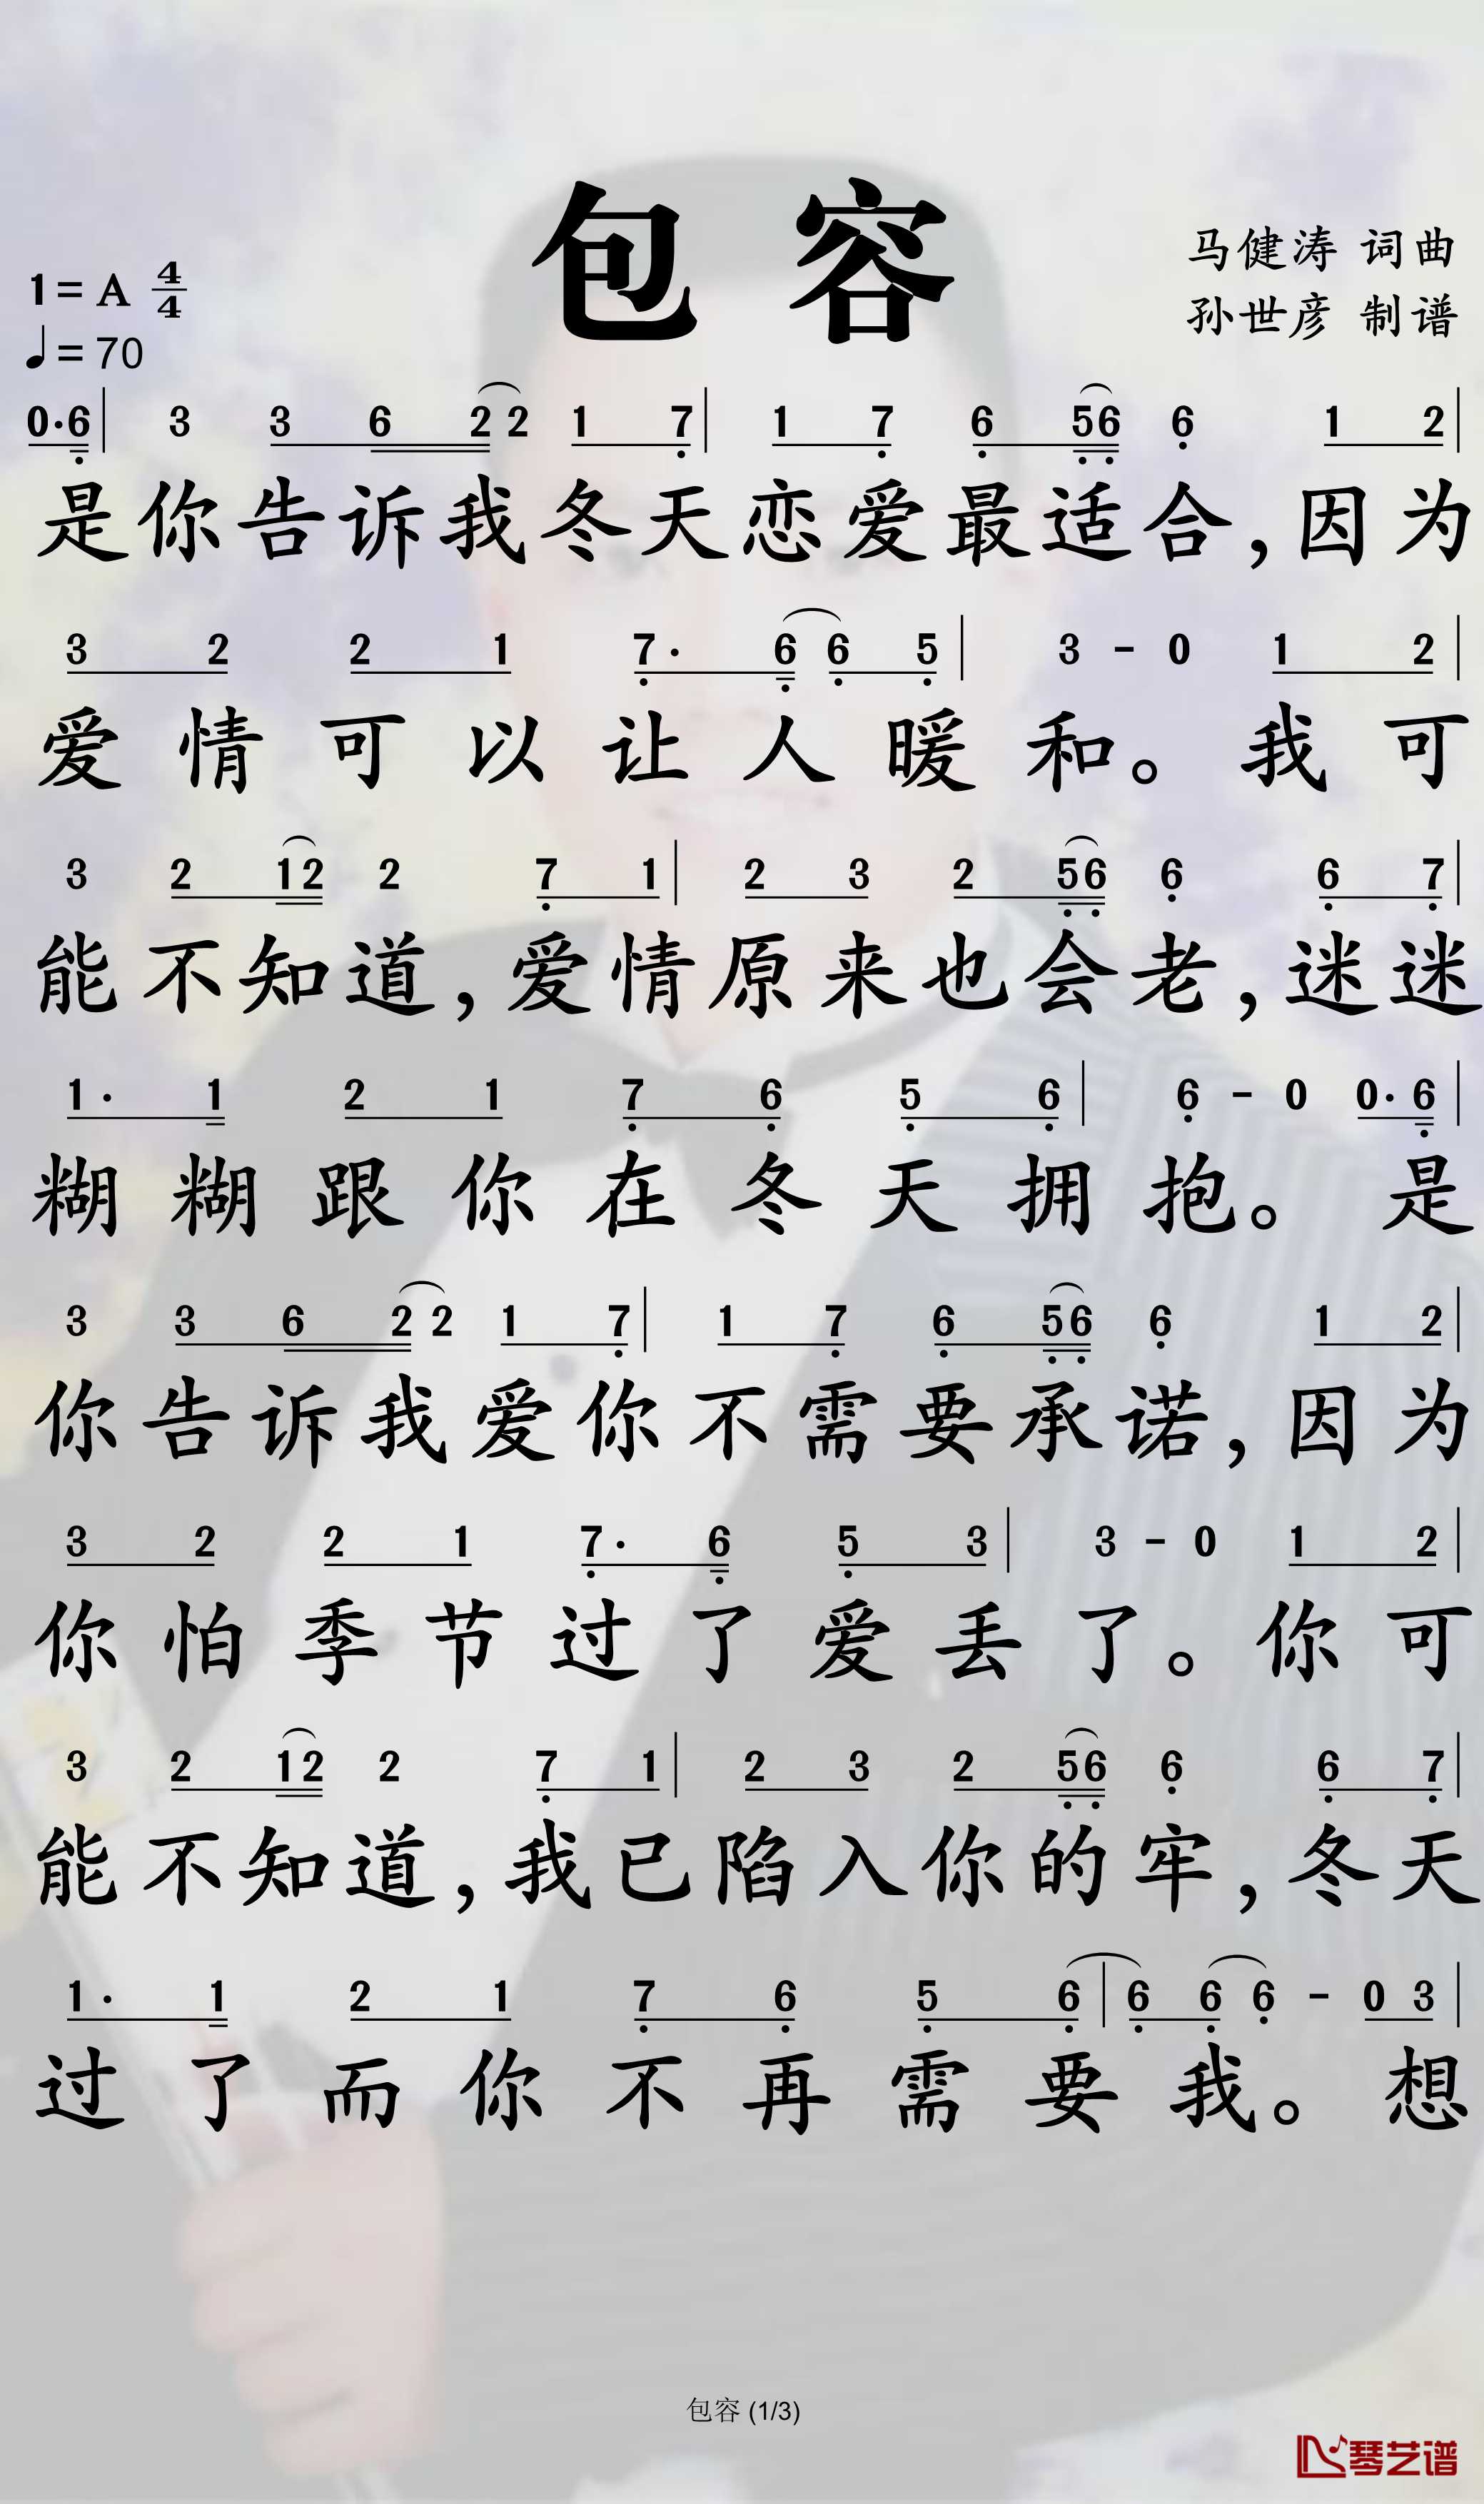 包容
马健涛 词曲
1= A 4/4
孙世彦 制谱
♩= 70
0·6 | 3 3 6 2 2 1 7 | 1 7 6 5 6 6 1 2 |
是你告诉我冬天恋爱最适合,因为
3 2 2 1 7· 6 6 5 | 3 - 0 1 2 |
爱情可以让人暖和。我可
3 2 1 2 2 7 1 | 2 3 2 5 6 6 6 7 |
能不知道,爱情原来也会老,迷迷
1· 1 2 1 7 6 5 6 | 6 - 0 0· 6 |
糊糊跟你在冬天拥抱。是
3 3 6 2 2 1 7 | 1 7 6 5 6 6 1 2 |
你告诉我爱你不需要承诺,因为
3 2 2 1 7· 6 5 3 | 3 - 0 1 2 |
你怕季节过了爱丢了。你可
3 2 1 2 2 7 1 | 2 3 2 5 6 6 6 7 |
能不知道,我已陷入你的牢,冬天
1· 1 2 1 7 6 5 6 | 6 6 6 - 0 3 |
过了而你不再需要我。想
包容 (1/3)
琴艺谱